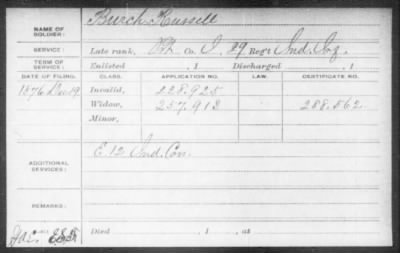 NAME OF SOLDIER: Burch Russell
SERVICE: Late rank, Co. I, 29 Reg't Ind. Inf.
TERM OF SERVICE: Enlisted , 1 Discharged , 1
DATE OF FILING. CLASS. APPLICATION NO. LAW. CERTIFICATE NO.
1876 Dec 19 Invalid, 228.925
Widow, 257.913 288.562
Minor,
ADDITIONAL SERVICES: E. 12 Ind. Cav.
REMARKS:
Died , 1 , at